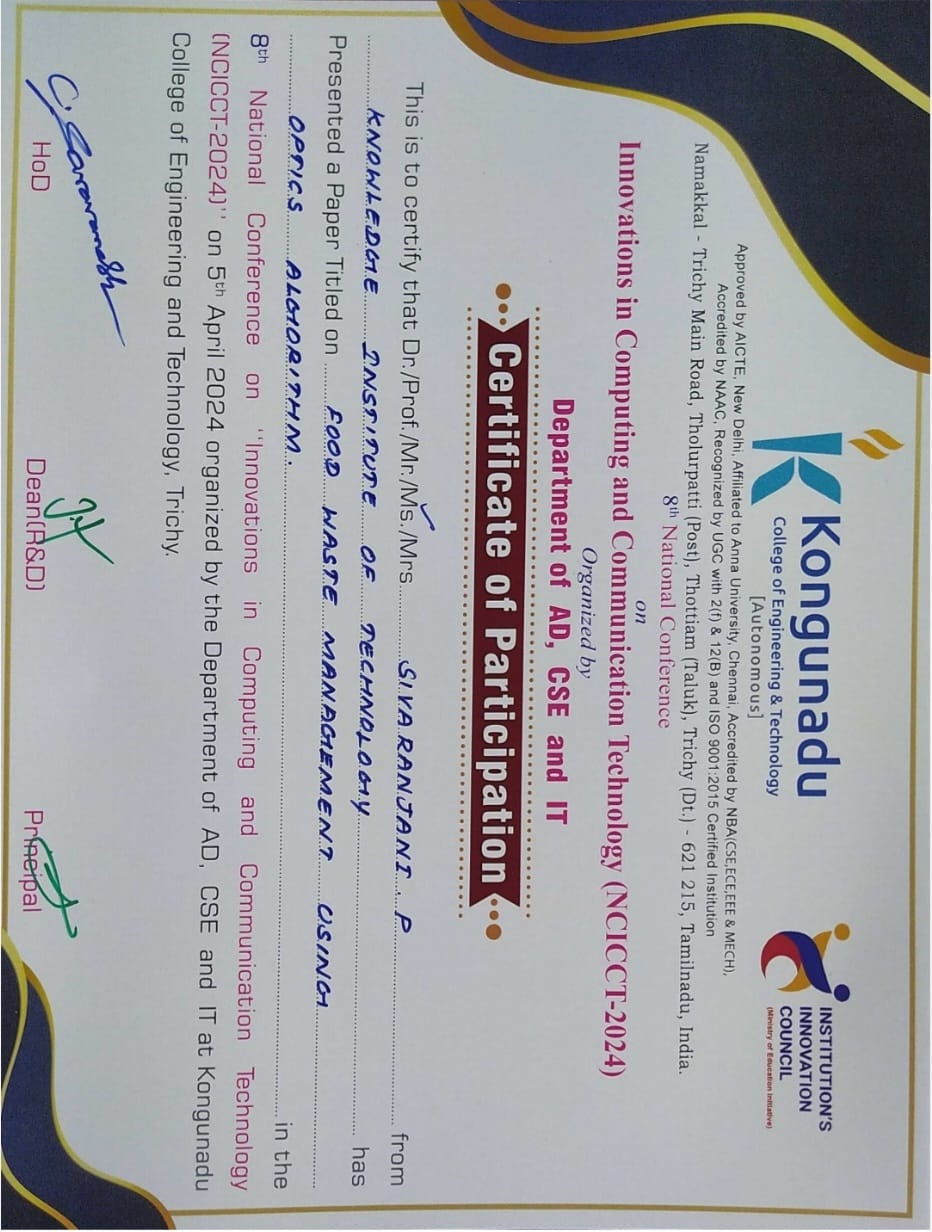 Kongunadu
College of Engineering & Technology
[Autonomous]
INSTITUTION'S
INNOVATION
COUNCIL
(Ministry of Education Initiative)
Approved by AICTE, New Delhi, Affiliated to Anna University, Chennai, Accredited by NBA(CSE,ECE,EEE & MECH),
Accredited by NAAC, Recognized by UGC with 2(f) & 12(B) and ISO 9001:2015 Certified Institution
Namakkal - Trichy Main Road, Tholurpatti (Post), Thottiam (Taluk), Trichy (Dt.) - 621 215, Tamilnadu, India.
8th National Conference
on
Innovations in Computing and Communication Technology (NCICCT-2024)
Organized by
Department of AD, CSE and IT
Certificate of Participation
This is to certify that Dr./Prof./Mr./Ms./Mrs. SIVARANJANI . P from
KNOWLEDGE INSTITUTE OF TECHNOLOGY has
Presented a Paper Titled on FOOD WASTE MANAGEMENT USING
OPTICS ALGORITHM. in the
8th National Conference on "Innovations in Computing and Communication Technology
(NCICCT-2024)" on 5th April 2024 organized by the Department of AD, CSE and IT at Kongunadu
College of Engineering and Technology, Trichy.
HoD
Dean(R&D)
Principal